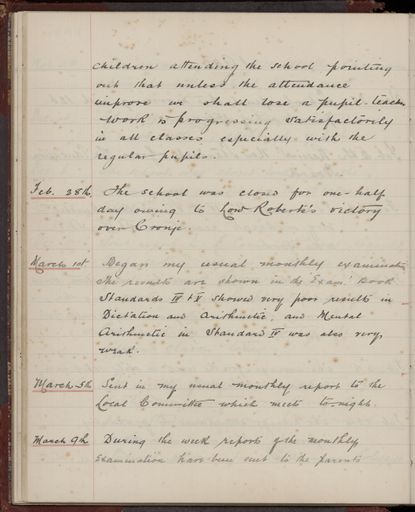 children attending the school pointing
out that unless the attendance
improve we shall lose a pupil-teacher
Work is progressing satisfactorily
in all classes especially with the
regular pupils.
Feb. 28th. The school was closed for one-half
day owing to Lord Robert's victory
over Cronje.
March 1st Began my usual monthly examination
The results are shown in the Exam. Book
Standards IV & V showed very poor results in
Dictation and Arithmetic, and Mental
Arithmetic in Standard IV was also very
weak.
March 5th Sent in my usual monthly report to the
Local Committee which meets to-night.
March 9th During the week reports of the monthly
Examination have been sent to the parents